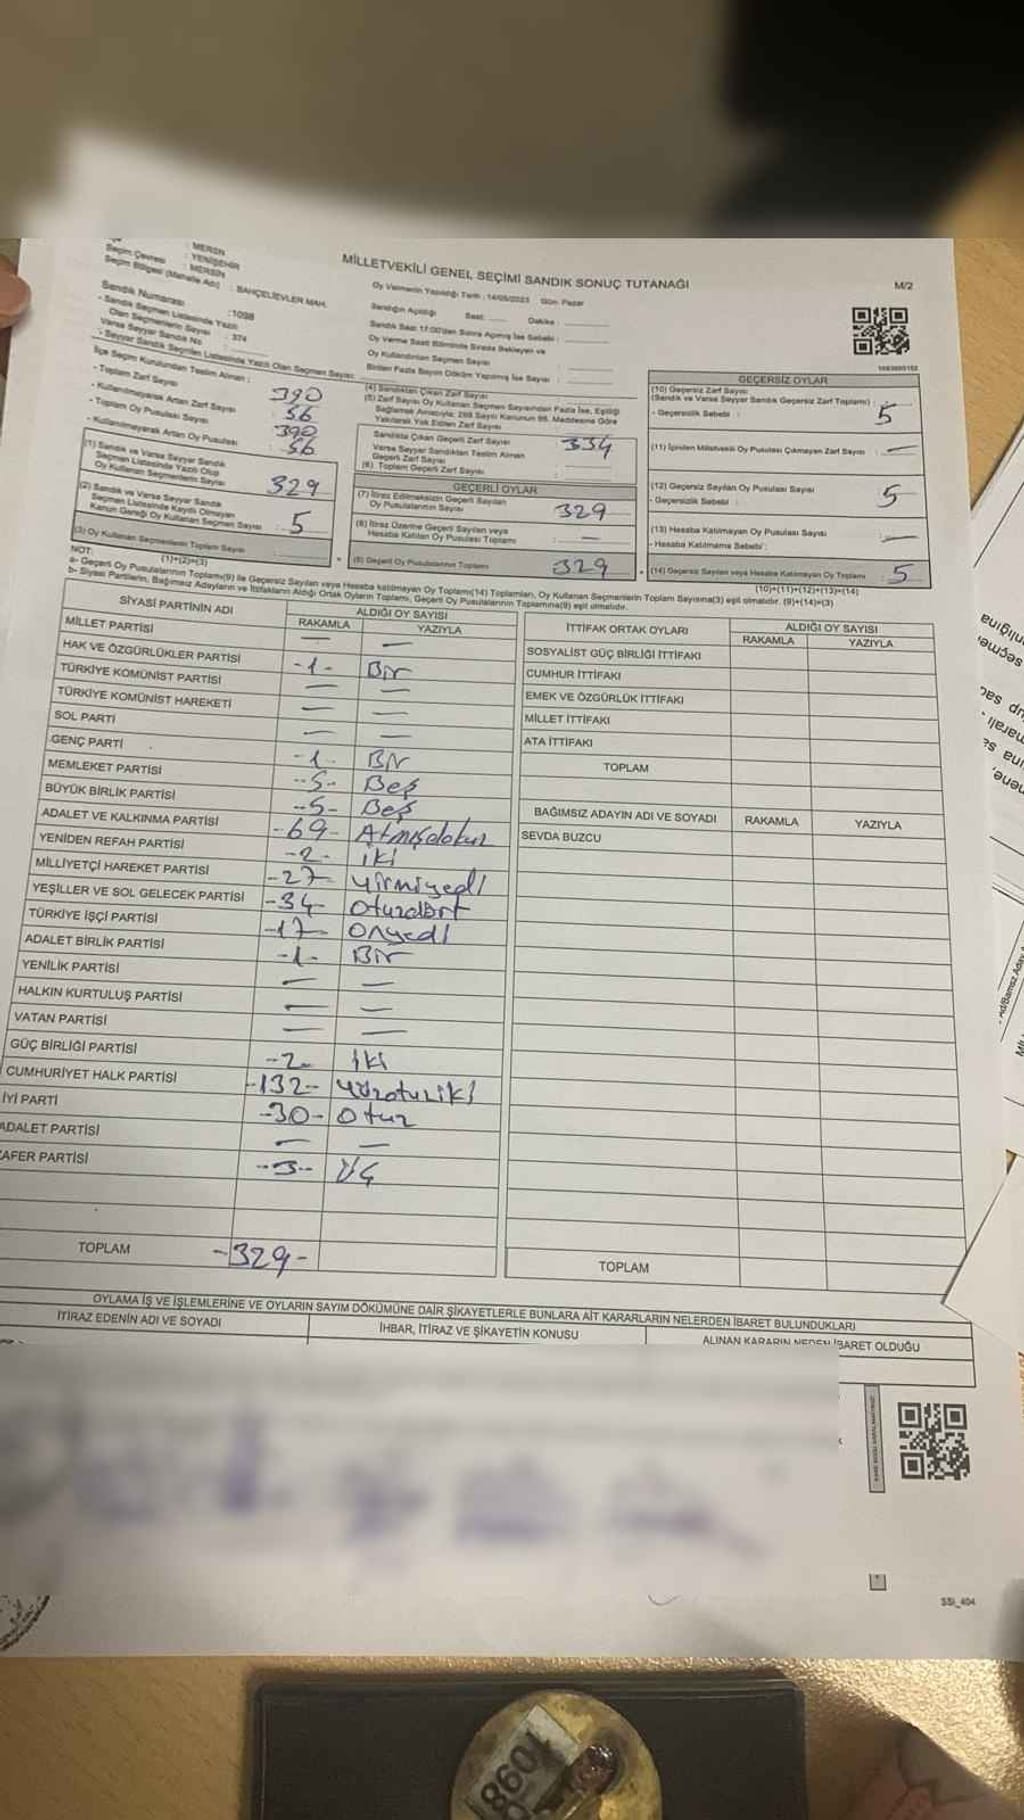 : MERSİN
Seçim Çevresi : YENİŞEHİR
Seçim Bölgesi (Mahalle Adı) : MERSİN
: BAHÇELİEVLER MAH.
MİLLETVEKİLİ GENEL SEÇİMİ SANDIK SONUÇ TUTANAĞI
M/2
Oy Vermenin Yapıldığı Tarih : 14/05/2023 Gün: Pazar
Sandığın Açıldığı Saat: Dakika :
Sandık Saat 17:00'den Sonra Açılmış İse Sebebi :
Oy Verme Saati Bitiminde Sırada Bekleyen ve
Oy Kullandırılan Seçmen Sayısı
Birden Fazla Sayım Döküm Yapılmış İse Sayısı
Sandık Numarası : 1098
- Sandık Seçmen Listesinde Yazılı
Olan Seçmenlerin Sayısı : 374
Varsa Seyyar Sandık No
- Seyyar Sandık Seçmen Listesinde Yazılı Olan Seçmen Sayısı:
İlçe Seçim Kurulundan Teslim Alınan :
- Toplam Zarf Sayısı 390
- Kullanılmayarak Artan Zarf Sayısı 56
- Toplam Oy Pusulası Sayısı 390
- Kullanılmayarak Artan Oy Pusulası 56
(1) Sandık ve Varsa Seyyar Sandık
Seçmen Listesinde Yazılı Olup
Oy Kullanan Seçmenlerin Sayısı 329
(2) Sandık ve Varsa Seyyar Sandık
Seçmen Listesinde Kayıtlı Olmayan
Kanun Gereği Oy Kullanan Seçmen Sayısı : 5
(3) Oy Kullanan Seçmenlerin Toplam Sayısı
(1)+(2)=(3)
(4) Sandıktan Çıkan Zarf Sayısı
(5) Zarf Sayısı Oy Kullanan Seçmen Sayısından Fazla İse, Eşitliği
Sağlamak Amacıyla; 298 Sayılı Kanunun 98. Maddesine Göre
Yakılarak Yok Edilen Zarf Sayısı
Sandıkta Çıkan Geçerli Zarf Sayısı : 334
Varsa Seyyar Sandıktan Teslim Alınan
Geçerli Zarf Sayısı
(6) Toplam Geçerli Zarf Sayısı
GEÇERLİ OYLAR
(7) İtiraz Edilmeksizin Geçerli Sayılan
Oy Pusulalarının Sayısı : 329
(8) İtiraz Üzerine Geçerli Sayılan veya
Hesaba Katılan Oy Pusulası Toplamı : —
(9) Geçerli Oy Pusulalarının Toplamı 329
GEÇERSİZ OYLAR
(10) Geçersiz Zarf Sayısı
(Sandık ve Varsa Seyyar Sandık Geçersiz Zarf Toplamı) : 5
- Geçersizlik Sebebi :
(11) İçinden Milletvekili Oy Pusulası Çıkmayan Zarf Sayısı : —
(12) Geçersiz Sayılan Oy Pusulası Sayısı 5
- Geçersizlik Sebebi :
(13) Hesaba Katılmayan Oy Pusulası Sayısı —
- Hesaba Katılmama Sebebi :
(14) Geçersiz Sayılan veya Hesaba Katılmayan Oy Toplamı : 5
(10)+(11)+(12)+(13)=(14)
NOT:
a- Geçerli Oy Pusulalarının Toplamı(9) ile Geçersiz Sayılan veya Hesaba katılmayan Oy Toplamı(14) Toplamları, Oy Kullanan Seçmenlerin Toplam Sayısına(3) eşit olmalıdır. (9)+(14)=(3)
b- Siyasi Partilerin, Bağımsız Adayların ve İttifakların Aldığı Ortak Oyların Toplamı, Geçerli Oy Pusulalarının Toplamına(9) eşit olmalıdır.
SİYASİ PARTİNİN ADI ALDIĞI OY SAYISI
RAKAMLA YAZIYLA
MİLLET PARTİSİ — —
HAK VE ÖZGÜRLÜKLER PARTİSİ -1- Bir
TÜRKİYE KOMÜNİST PARTİSİ — —
TÜRKİYE KOMÜNİST HAREKETİ — —
SOL PARTİ — —
GENÇ PARTİ -1- Bir
MEMLEKET PARTİSİ -5- Beş
BÜYÜK BİRLİK PARTİSİ -5- Beş
ADALET VE KALKINMA PARTİSİ -69- Atmışdokuz
YENİDEN REFAH PARTİSİ -2- iki
MİLLİYETÇİ HAREKET PARTİSİ -27- yirmiyedi
YEŞİLLER VE SOL GELECEK PARTİSİ -34- Otuzdört
TÜRKİYE İŞÇİ PARTİSİ -17- Onyedi
ADALET BİRLİK PARTİSİ -1- Bir
YENİLİK PARTİSİ — —
HALKIN KURTULUŞ PARTİSİ — —
VATAN PARTİSİ — —
GÜÇ BİRLİĞİ PARTİSİ -2- İki
CUMHURİYET HALK PARTİSİ -132- Yüzotuziki
İYİ PARTİ -30- Otuz
ADALET PARTİSİ — —
ZAFER PARTİSİ -3- Üç
TOPLAM -329-
İTTİFAK ORTAK OYLARI ALDIĞI OY SAYISI
RAKAMLA YAZIYLA
SOSYALİST GÜÇ BİRLİĞİ İTTİFAKI
CUMHUR İTTİFAKI
EMEK VE ÖZGÜRLÜK İTTİFAKI
MİLLET İTTİFAKI
ATA İTTİFAKI
TOPLAM
BAĞIMSIZ ADAYIN ADI VE SOYADI RAKAMLA YAZIYLA
SEVDA BUZCU
TOPLAM
OYLAMA İŞ VE İŞLEMLERİNE VE OYLARIN SAYIM DÖKÜMÜNE DAİR ŞİKAYETLERLE BUNLARA AİT KARARLARIN NELERDEN İBARET BULUNDUKLARI
İTİRAZ EDENİN ADI VE SOYADI İHBAR, İTİRAZ VE ŞİKAYETİN KONUSU ALINAN KARARIN NEDEN İBARET OLDUĞU
SSİ_404
1098